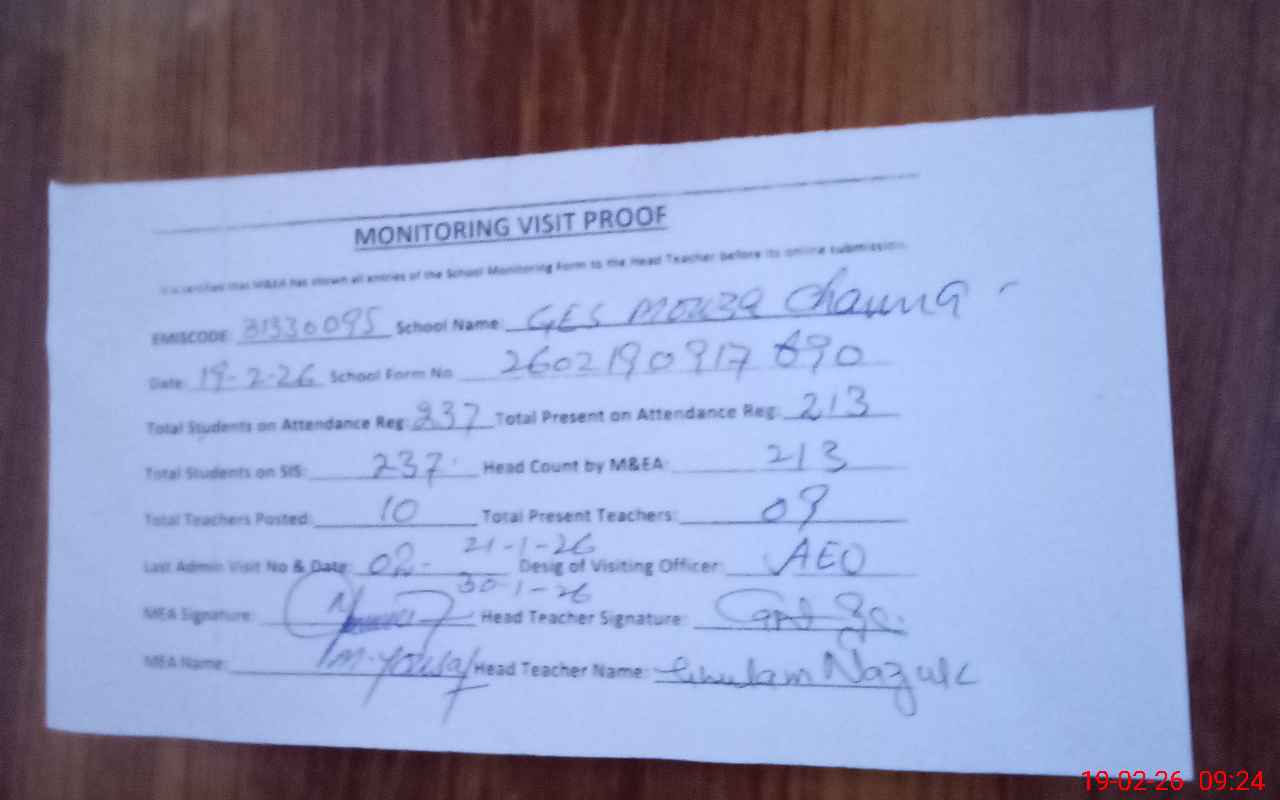 MONITORING VISIT PROOF
It is certified that M&EA has shown all entries of the School Monitoring Form to the Head Teacher before its online submission.
EMISCODE: 31330095 School Name: GES Mouza Channa
Date: 19-2-26 School Form No 2602190917690
Total Students on Attendance Reg: 237 Total Present on Attendance Reg: 213
Total Students on SIS: 237 Head Count by M&EA: 213
Total Teachers Posted: 10 Total Present Teachers: 09
21-1-26
Last Admin Visit No & Date: 02- Desig of Visiting Officer: AEO
30-1-26
MEA Signature: Head Teacher Signature:
MEA Name: M-Yousaf Head Teacher Name: Ghulam Nazuk
19-02-26 09:24